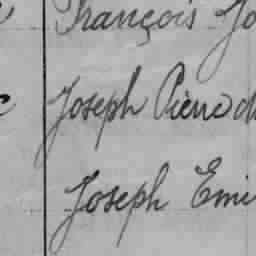 François Jo
Joseph Pierre d
Joseph Emi